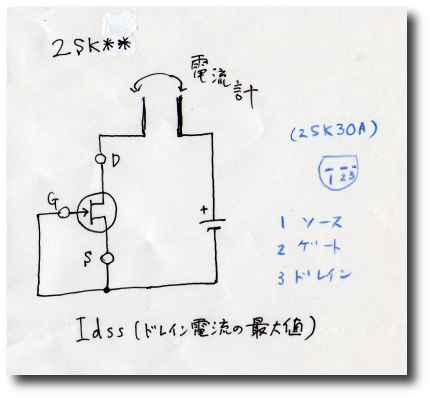 2SK**
電流計
(2SK30A)
1 2 3
D
G
+
S
1 ソース
2 ゲート
3 ドレイン
Idss (ドレイン電流の最大値)